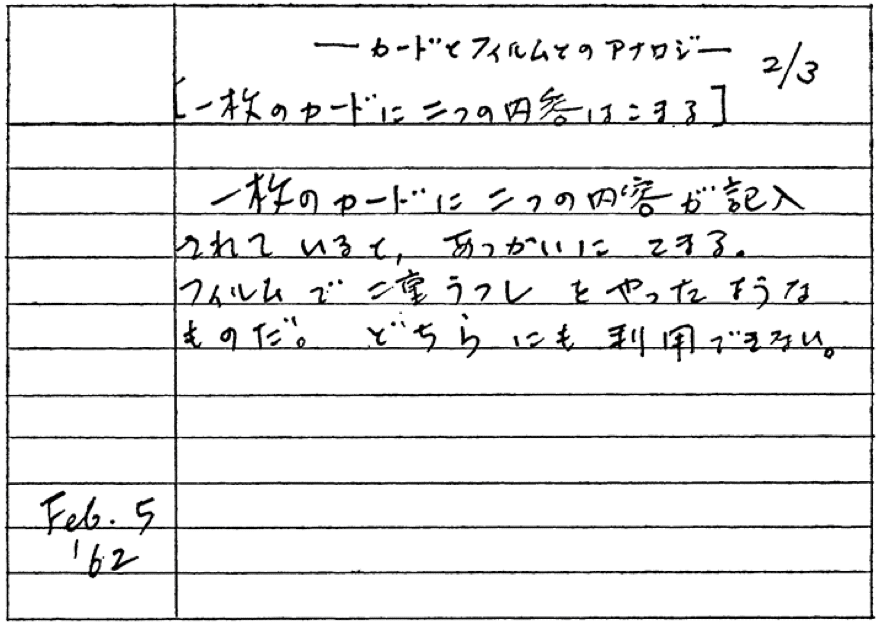 ― カードとフィルムとのアナロジー
2/3
[一枚のカードに二つの内容はこまる]
一枚のカードに二つの内容が記入
されていると，あつかいにこまる。
フィルムで二重うつしをやったような
ものだ。どちらにも利用できない。
Feb. 5
'62